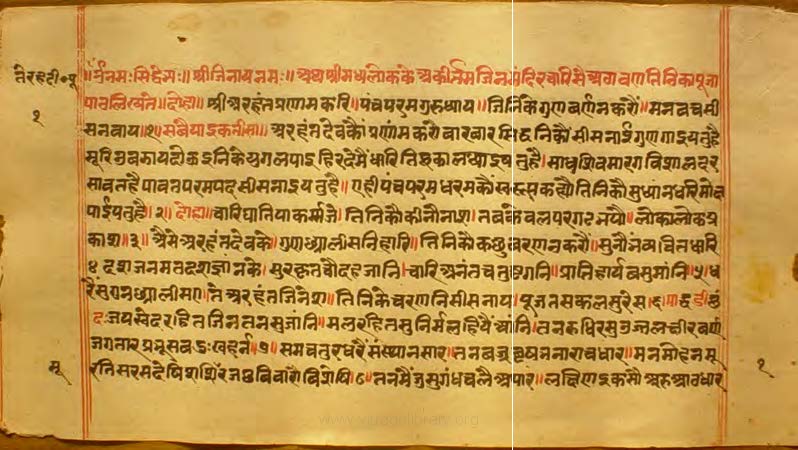 ॥र्द॥नमः सिद्धेभ्यः॥ श्रीजिनायनमः॥ अथ श्रीमधलोकके अकीर्तमजिनमंदिरचारिसै अठावणतिनिकीपूजा
पाठलिख्यते॥ दोहा॥ श्रीअरहंतप्रणामकरि॥ पंचपरमगुरुध्याय॥ जिनिकेगुणवर्णनकरौं॥ मनवचसी
सनवाय॥१॥ सवैयाइकतीसा॥ अरहंतदेवकौं प्रणंमकरौं वारवार सिद्धनिकौंसीसनाईगुणगाइयतुहै
सूरिउवझायदोऊइनिकेयुगलपाइहिरदेमैंधारितिहकालध्याइयतुहै। साधुशिवमारगविशालदर
सावतहैपावनपरमपदसीसनाइयतुहै। एहीपंचपरमधरमकौंसरूपकह्यौतिनिकौसुध्यानधरिमोक्ष
पाईयतुहै। २॥ दोहा॥ चारिघातियाकर्मजे। तिनिकौकीनौनाश। तबकेवलपरगटभयौ। लोकालोकप्र
काश॥३॥ ऐसेअरहंतदेवके। गुणछ्यालीसनिहारि। तिनिकौकछुवरणनकरौं॥ सुनौभव्यचितधारि
४ दशजनमतदशज्ञांनके। सुरकृतचौदहजानि। चारिअनंतचतुष्टगनि। प्रातिहार्यवसुमांनि॥५॥ ध
रैंसुगुनछ्यालीमए। ते अरहंतजिनेश। तिनिकेचरणनिसीसनाय। पूजतसकलसुरेस। ६। पाद्धडीछं
दः जयस्वेदरहितजिनतनसुजांनि॥ मलरहितसुनिर्मलहियैंआंनि। तनरुधिरसुउज्जलक्षीरवर्ण
जगतारप्रभूसबदुःखहर्न॥७॥ समचतुरधरैंसंस्थानसार॥ तनवज्रवृषभनाराचधार॥ मनमोहनमू
रतिसरसदेषि। शशि विशेषि। ८। तनमैंजुसुगंधचलैअपार॥ लक्षिणइकसौअरुआठधार
१
मू
१
www.vitragelibrary.org